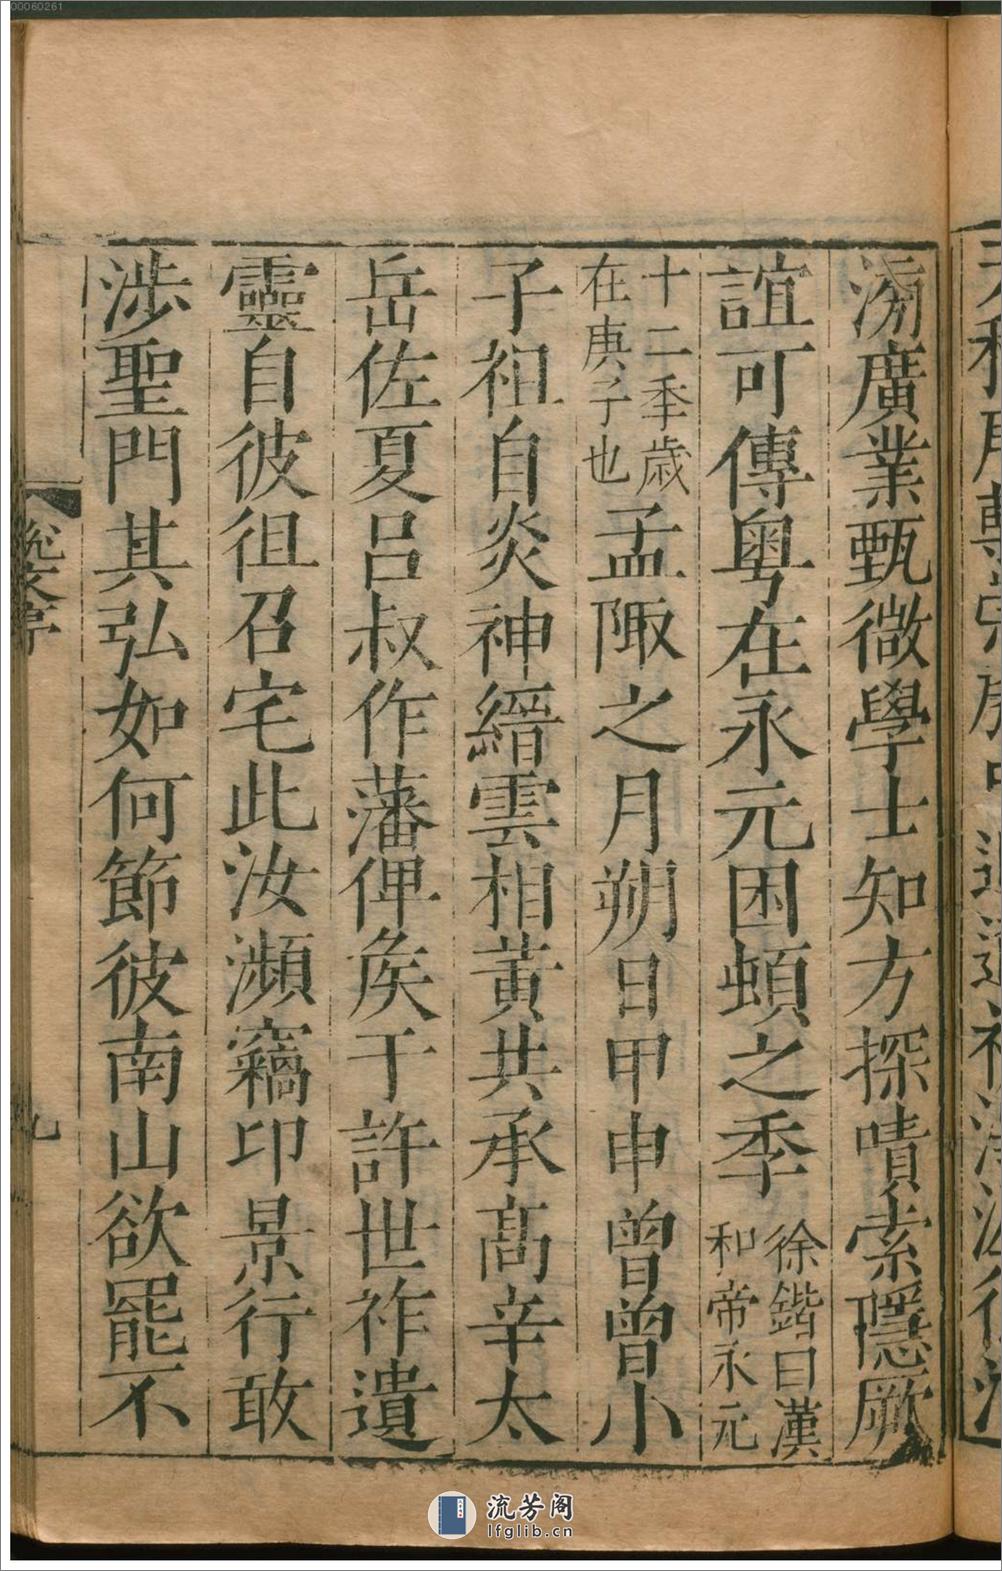 00060261
滂廣業甄微學士知方探嘖索隱厥
誼可傳粵在永元困頓之季徐鍇曰漢和帝永元
十二季歲在庚子也孟陬之月朔日甲申曾曾小
子祖自炎神縉雲相黃共承高辛太
岳佐夏呂叔作藩俾矦于許世祚遺
靈自彼徂召宅此汝瀕竊卬景行敢
涉聖門其弘如何節彼南山欲罷不
說文序
九
流芳阁
lfglib.cn